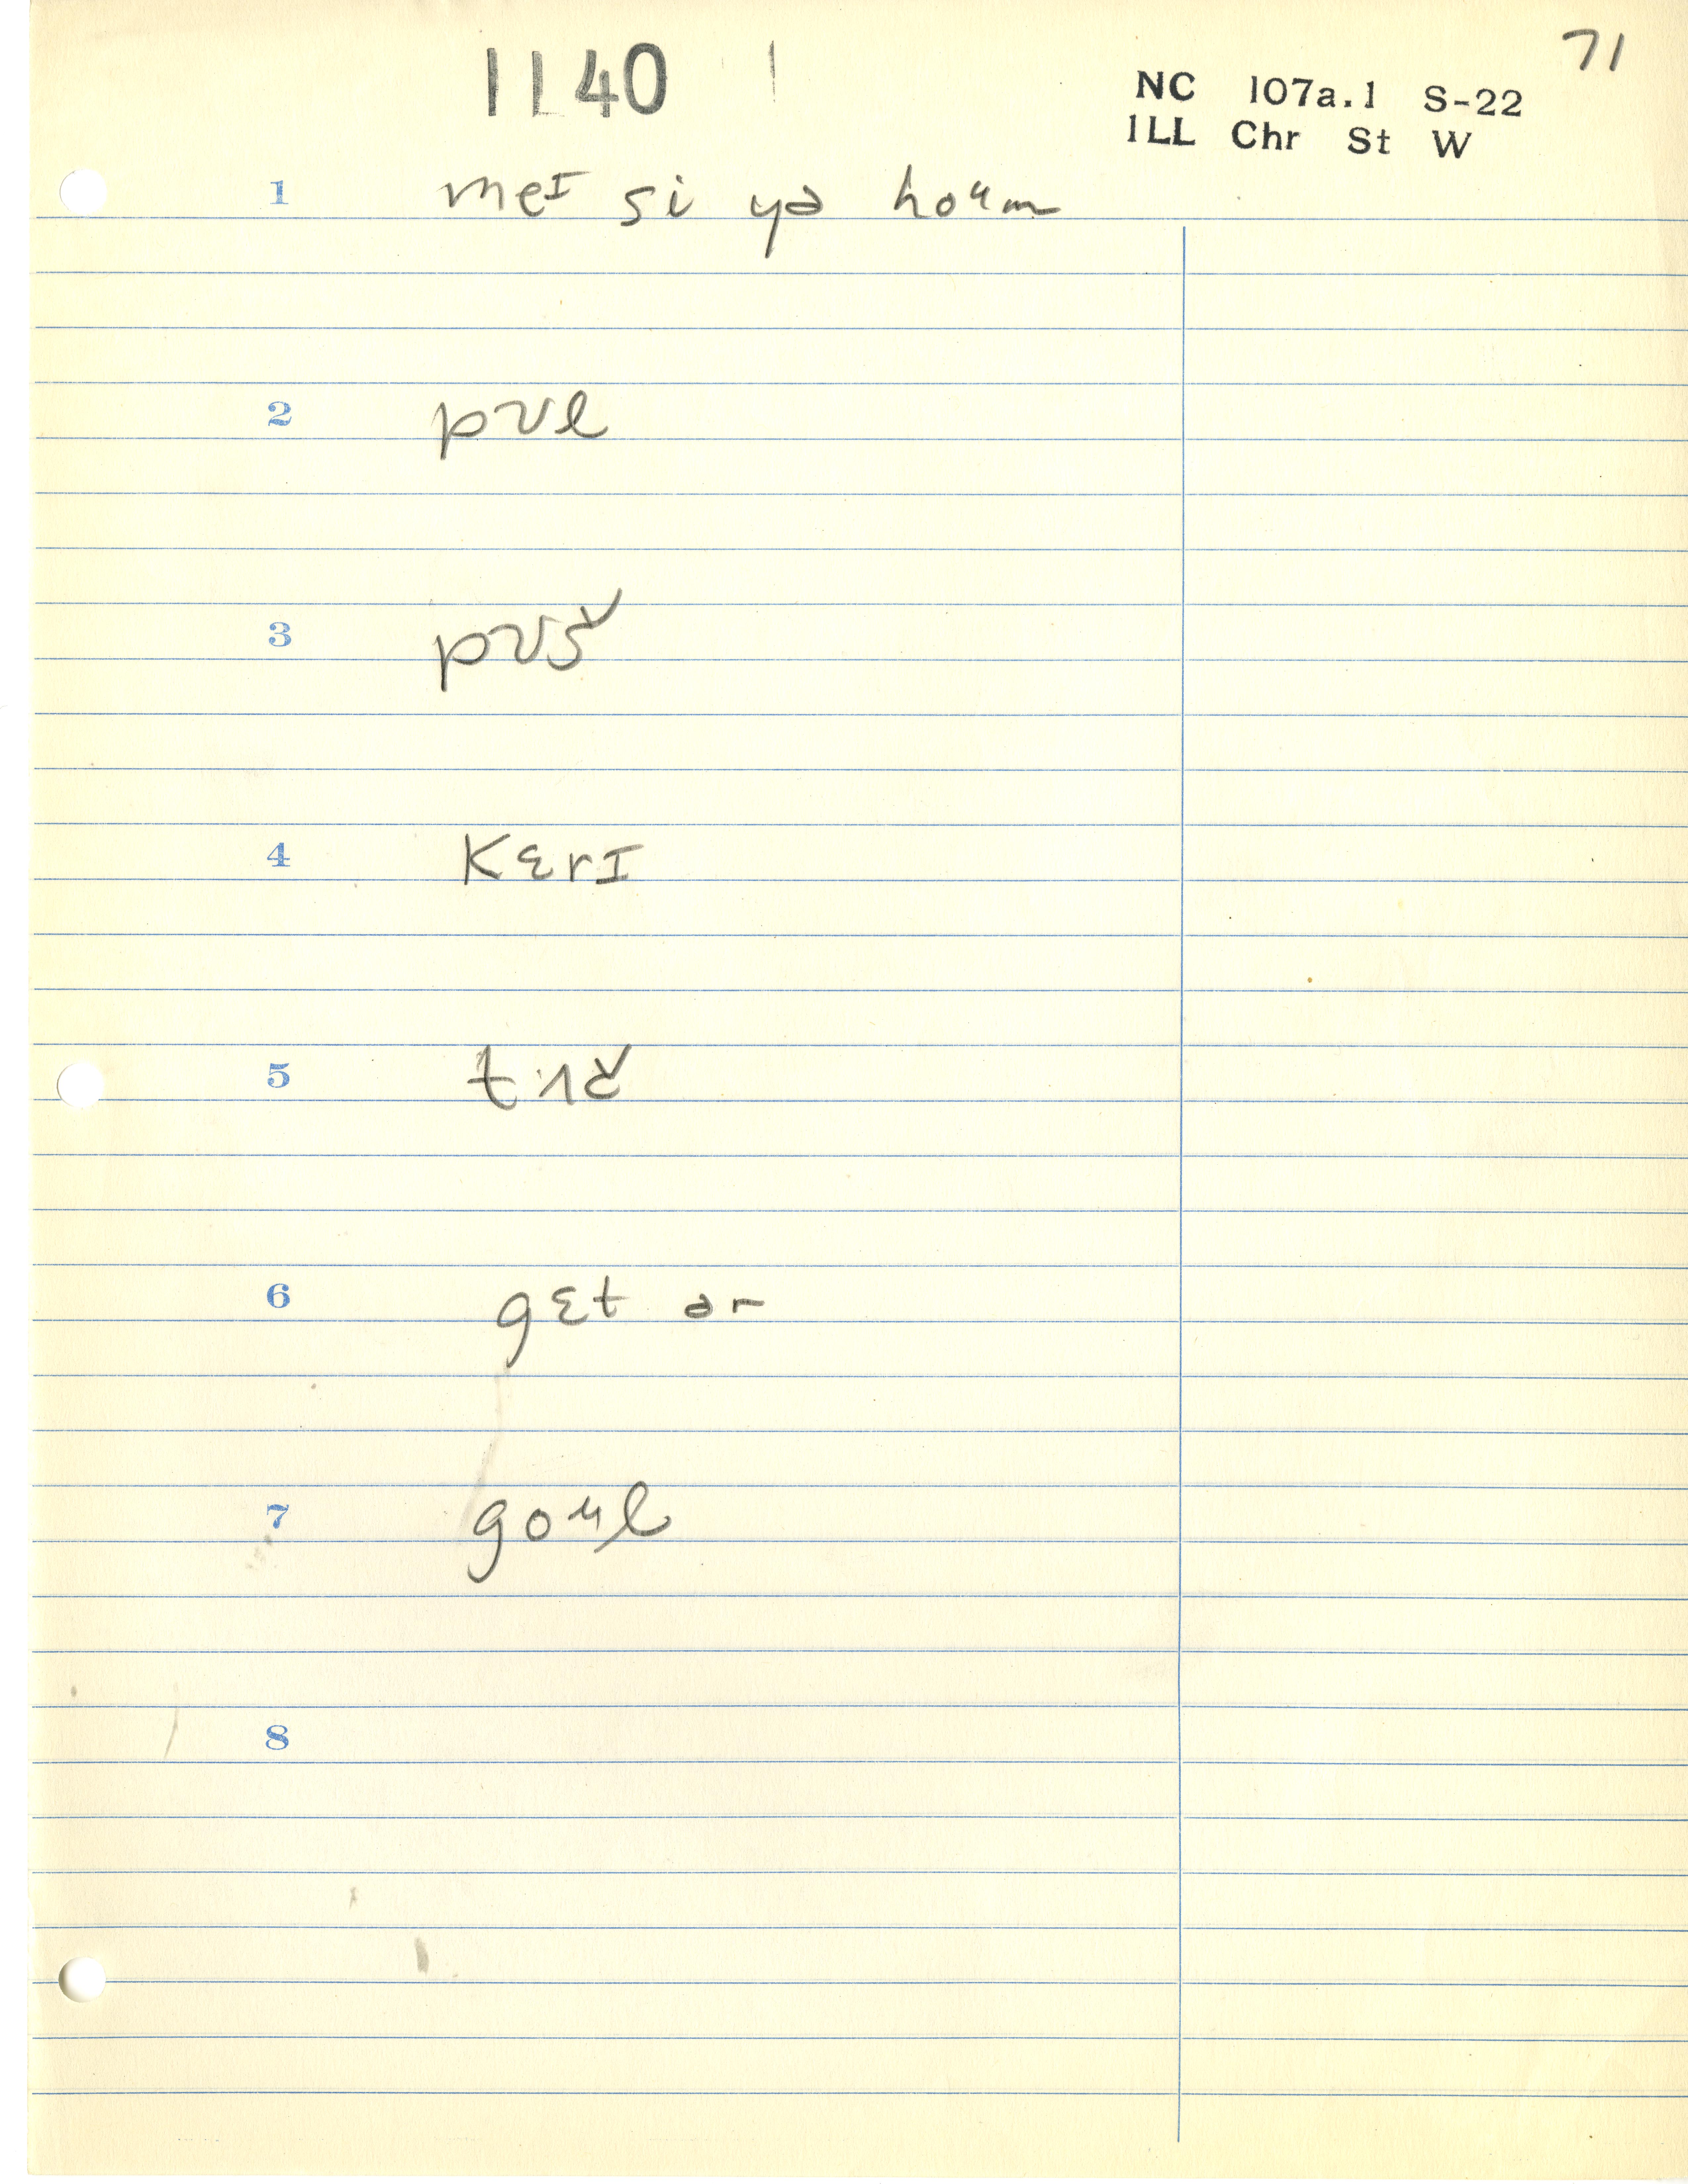 71
1140
NC 107a.1 S-22
ILL Chr St W
1 meᴵ si yə hoᵘm
2 pʊl
3 pʊš
4 kɛrɪ
5 
6 gɛt ər
7 goᵘl
8